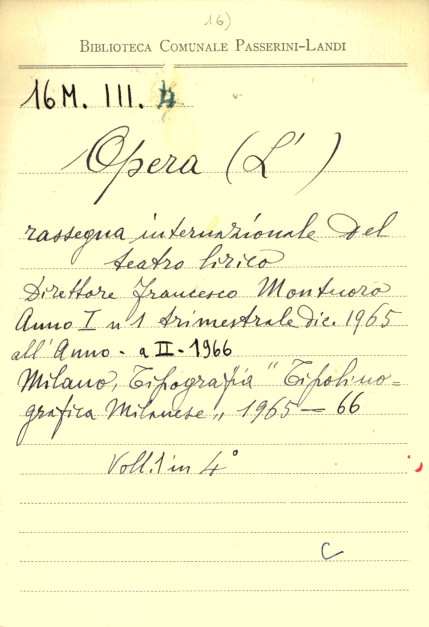 16)
BIBLIOTECA COMUNALE PASSERINI-LANDI
16 M. III.
Opera (L')
rassegna internazionale del
teatro lirico
Direttore Francesco Montuoro
Anno I n 1 trimestrale dic. 1965
all'Anno - a II - 1966
Milano, Tipografia "Tipolino=
grafica Milanese" 1965 — 66
Voll. 1 in 4°
C